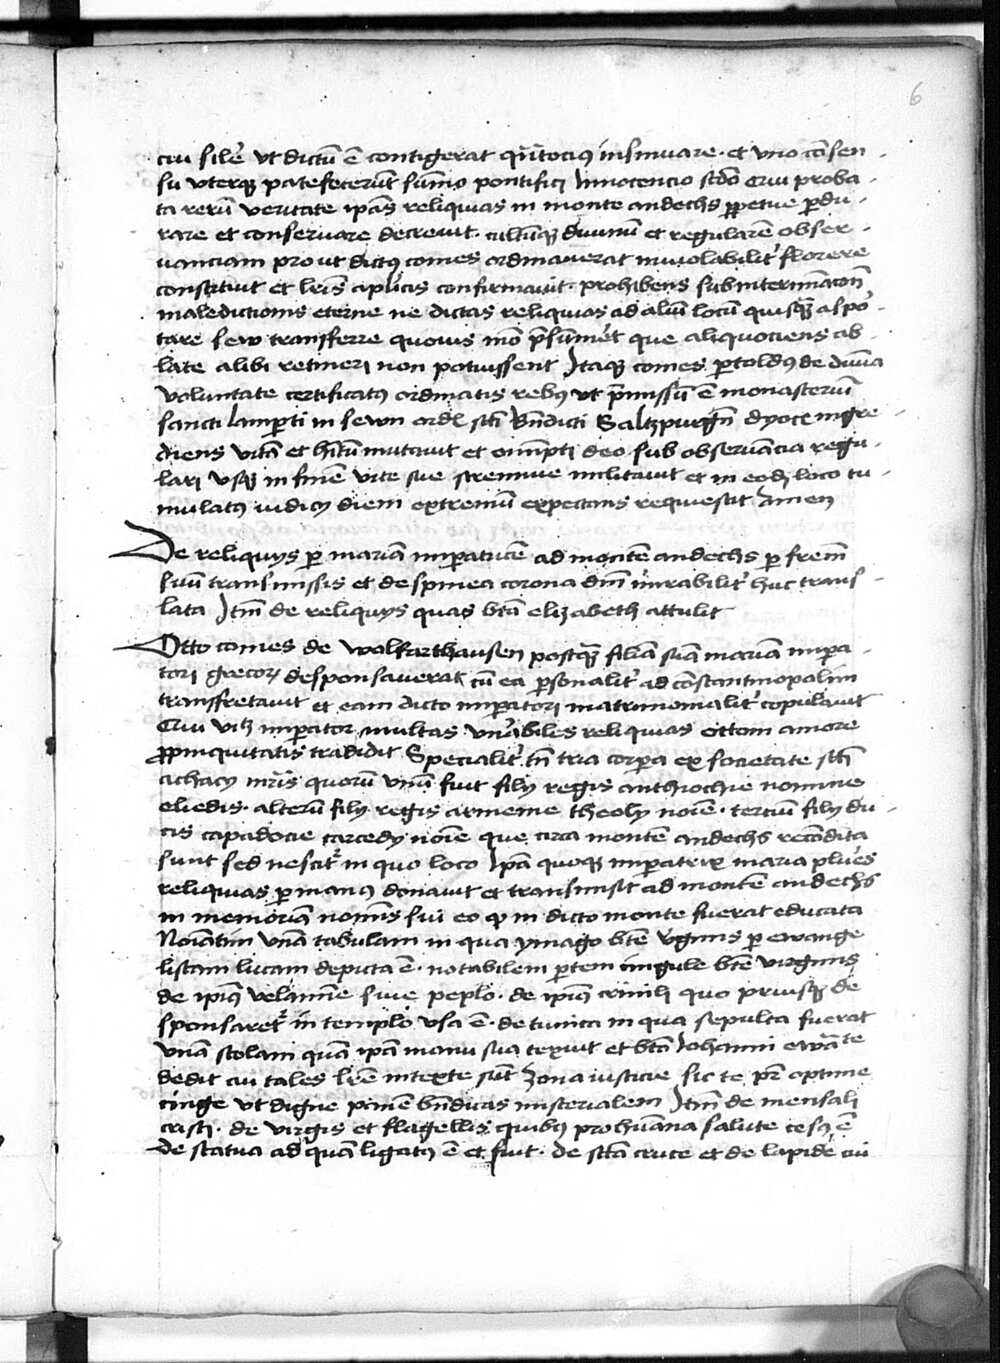 6
cui silē vt dictū ē contigerat q̄ntocius insinuare · et vno cōsen
su vterqȝ patefecerūt sūmo pontifici Innocencio scdo Cui proba
ta rerū veritate ip̄as reliquias in monte andechs ꝑpetue ꝑdu
rare et conseruare decreuit · cultūqȝ diuinū et regularē obser
uanciam prout dictus comes ordinauerat inuiolabilit̄ florere
constituit et lr̄is aplicis confirmauit · prohibens sub interminacōn
maledictionis eterne ne dictas reliquias ad aliū locū quisqȝ aspo
tare sew transferre quouis mō p̄sumēt que aliquociens ab
late alibi retineri non potuissent Itaqȝ comes ꝑtoldus de diuīa
voluntate certificatus ordinatis rebus vt p̄missū ē monasteriū
sancti lamꝑti in sewn ordīs sc̄ti bn̄dicti Saltzpurgn̄ dyoc̄ ingre
diens vitā et hitū mutauit et omīpti deo sub obseruācia regu
lari vsqȝ in finē vite sue strennue militauit et in eodē loco tu
mulatus iudicij diem extremū expectans requiescit Amen
De reliquijs ꝑ mariā imꝑatricē ad montē andechs ꝑ frem̄
suū transmissis et de spinea corona dn̄i mirabilit̄ huc trans
lata Itm̄ de reliquijs quas btā elizabeth attulit
Otto comes de wolfarthausen postqȝ filiā suā mariā imꝑa
tori grecorꝝ desponsauerat cū ea ꝑsonalit̄ ad cōstantinopolim
transfretauit et eam dicto imꝑatori matrimonialit̄ copulauit
Cui vtȝ imꝑator multas vn̄abiles reliquias ottoni amore
ꝓpinquitatis tradidit Specialit̄ tn̄ tria corꝑa ex societate sc̄ti
achacij mr̄is quorū vnū fuit filij regis anthiochie nomine
eliedis · alterū filij regis armenie theolij noīe · terciū filij du
cis capadocie carcedij noīe que circa montē andechs recōdita
sunt sed nescit̄ in quo loco Ip̄a quoqȝ imꝑatrix maria plures
reliquias ꝑ manus donauit et transmisit ad montē andechs
in memoriā nominis sui eo ꝙ in dicto monte fuerat educata
Noīatim vnā tabulam in qua ymago btē v̄ginis ꝑ ewange
listam lucam depicta ē · notabilem ꝑtem cingule btē virginis
de ip̄ius velamine siue peplo · de ip̄ius crinili quo priusqȝ de
sponsaret̄ in templo vsa ē · de tunica in qua sepulta fuerat
vnā stolam quā ip̄a manu sua texuit et btō Johanni ewāte
dedit cui tales lr̄e intexte sūt Zona iusticie sic te pr̄ optime
cinge vt digne panē bn̄dicas misterialem Itm̄ de mensali
cristi · de virgis et flagellis quibus pro hūana salute cesus ē
De statua ad quā ligatus ē et fuit · de sctā cruce et de lapide cui